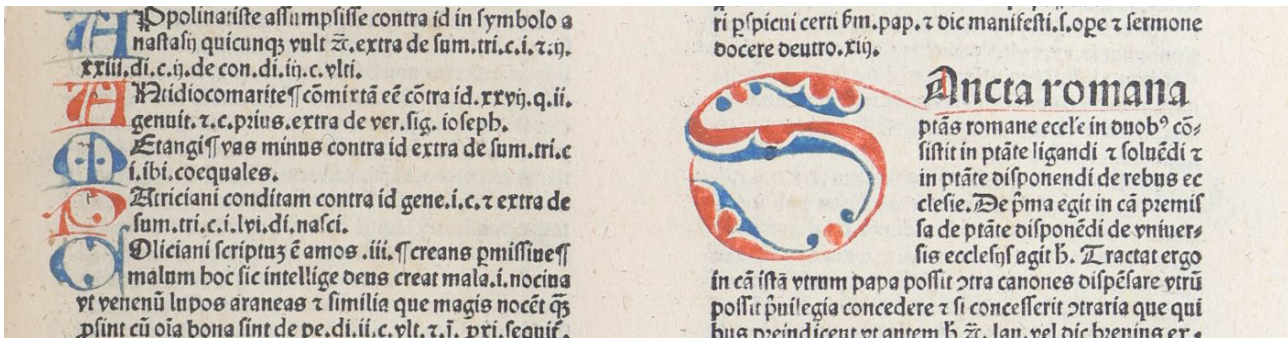 Apolinariste assumpsisse contra id in symbolo a
nastasij quicunqꝫ vult ⁊c̄. extra de sum.tri.c.i.⁊.ij.
xxiij.di.c.ij.de con.di.iij.c.vlti.
Antidiocomarite¶ cōmixtā eē cōtra id.xxvij.q.ii.
genuit.⁊.c.prius.extra de ver.sig. ioseph.
Metangi¶ vas minus contra id extra de sum.tri.c
i.ibi.coequales.
Patriciani conditam contra id gene.i.c.⁊ extra de
sum.tri.c.i.lvi.di.nasci.
Coliciani scriptuꝫ ē amos .iii. ¶ creans ꝑmissiue¶
malum hoc sic intellige deus creat mala.i.nociua
vt venenū lupos araneas ⁊ similia que magis nocēt qꝫ̄
ꝓsint cū oīa bona sint de pe.di.ii.c.vlt.⁊.j̄. ꝓxi.sequit᷑.
ri ꝑspicui certi bm̄.pap.⁊ dic manifesti.s.oꝑe ⁊ sermone
docere deutro.xij.
SAncta romana
ptās romane eccl'e in duobꝰ cō⸗
sistit in ptāte ligandi ⁊ soluēdi ⁊
in ptāte disponendi de rebus ec
clesie. De p̄ma egit in cā premis
sa de ptāte disponēdi de vniuer⸗
sis ecclesijs agit h̄. Tractat ergo
in cā istā vtrum papa possit ↄtra canones dispēsare vtrū
possit p̄uilegia concedere ⁊ si concesserit ↄtraria que qui
bus preiudicent vt autem h̄ ⁊c̄. lau. vel dic breuius ex⸗